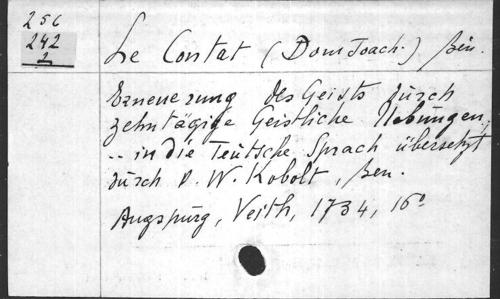 25c
242
2
Le Contat (Dom Joach.) Ben.
Erneuerung des Geists durch
zehntägige Geistliche Uebungen,
.. in die Teutsche Sprach übersetzt
durch P. W. Kobolt, Ben.
Augspurg, Veith, 1734, 16°